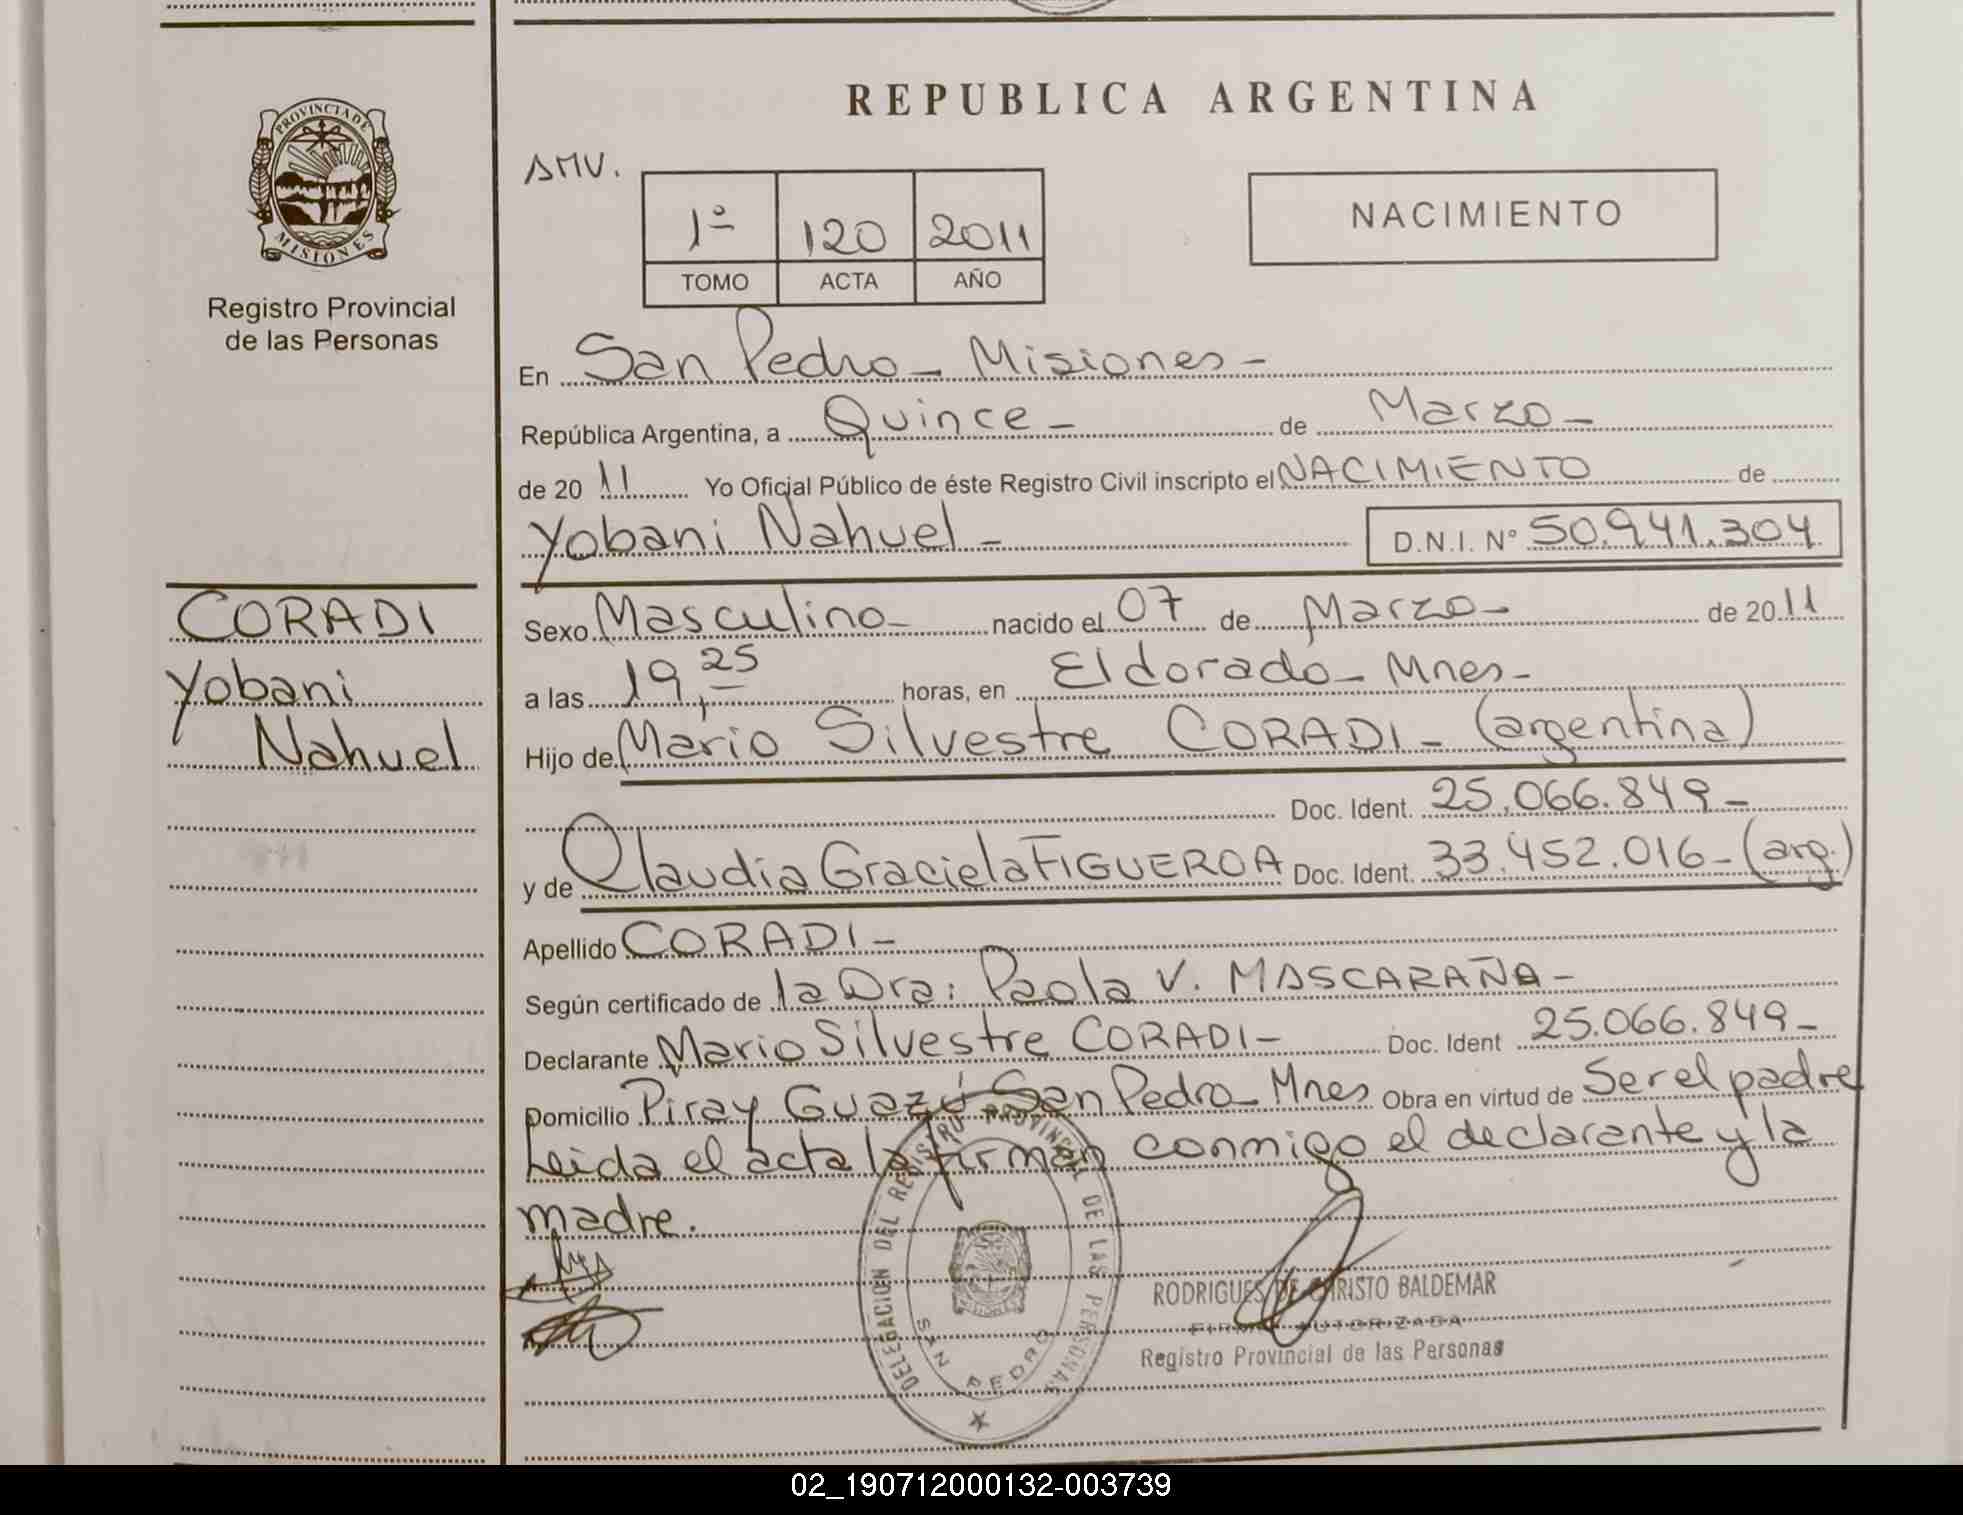 REPUBLICA ARGENTINA
PROVINCIA DE
MISIONES
Registro Provincial
de las Personas
AMV.
1º 120 2011
TOMO ACTA AÑO
NACIMIENTO
En San Pedro - Misiones -
República Argentina, a Quince - de Marzo -
de 20 11 Yo Oficial Público de éste Registro Civil inscripto el NACIMIENTO de
Yobani Nahuel - D.N.I. Nº 50.941.304
CORADI
Yobani
Nahuel
Sexo Masculino - nacido el 07 de Marzo - de 20 11
a las 19,25 horas, en Eldorado - Mnes -
Hijo de Mario Silvestre CORADI - (argentina)
Doc. Ident. 25.066.849 -
y de Claudia Graciela FIGUEROA Doc. Ident. 33.452.016 - (arg.)
Apellido CORADI -
Según certificado de la Dra: Paola V. MASCARAÑA -
Declarante Mario Silvestre CORADI - Doc. Ident 25.066.849 -
Domicilio Piray Guazú San Pedro - Mnes Obra en virtud de Ser el padre
Leida el acta la firman conmigo el declarante y la
madre.
DELEGACION DEL REGISTRO PROVINCIAL DE LAS PERSONAS
SAN PEDRO
RODRIGUES DE CHRISTO BALDEMAR
FIRMA AUTORIZADA
Registro Provincial de las Personas
02_190712000132-003739